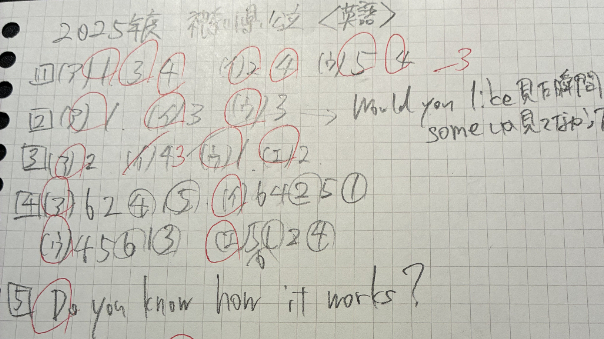 2025年度 神奈川県公立 〈英語〉
1 (ア) 1 3 4 (イ) 2 4 (ウ) 5 4 -3
2 (ア) 1. (イ) 3 (ウ) 3 → Would you like 見た瞬間
some しか見てなかった
3 (ア) 2 (イ) 43 (ウ) 1 (エ) 2
4 (ア) 6 2 ④ 1 ⑤ (イ) 6 4 ② 5 ①
(ウ) 4 5 ⑥ 1 ③ (エ) 5 ① 2 ④
5 Do you know how it works?